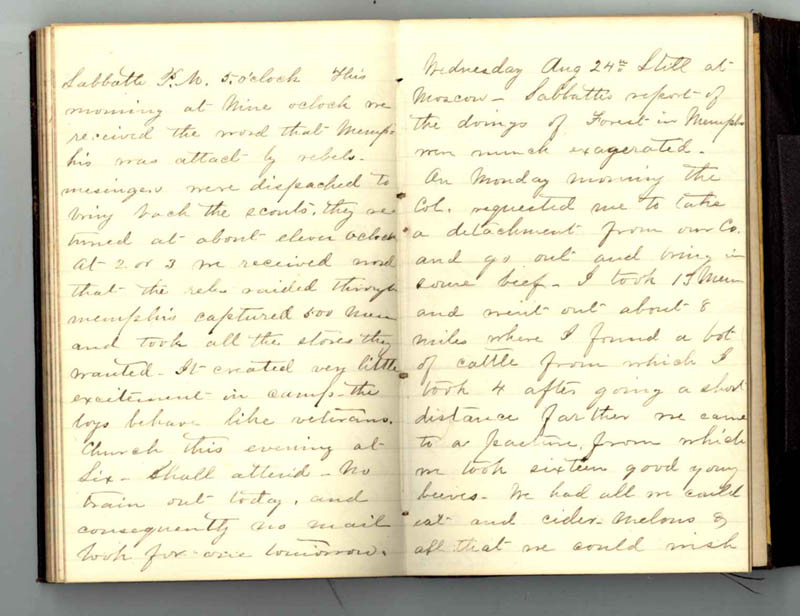 Sabbath P.M. 5 o'clock This
morning at Nine oclock we
received the word that Memp
his was attact by rebels.
mesingers were dispached to
bring back the scouts. they re
turned at about eleven oclock
At 2 or 3 we received word
that the rebs raided through
memphis captured 500 men
and took all the stores they
wanted - It created very little
excitement in camp - the
boys behave like veterans.
Church this evening at
Six - Shall attend - No
train out today, and
consequently no mail
look for one tomorrow.
Wednesday Aug 24th Still at
Moscow - Sabbaths report of
the doings of Forest in Memphs
were much exagerated.
On Monday morning the
Col. requested me to take
a detachment from our Co.
and go out and bring in
some beef - I took 15 Men
and went out about 8
miles where I found a lot
of cattle from which I
took 4 after going a short
distance farther we came
to a pasture, from which
we took sixteen good young
beeves - We had all we could
eat and cider - Melons &
all that we could wish